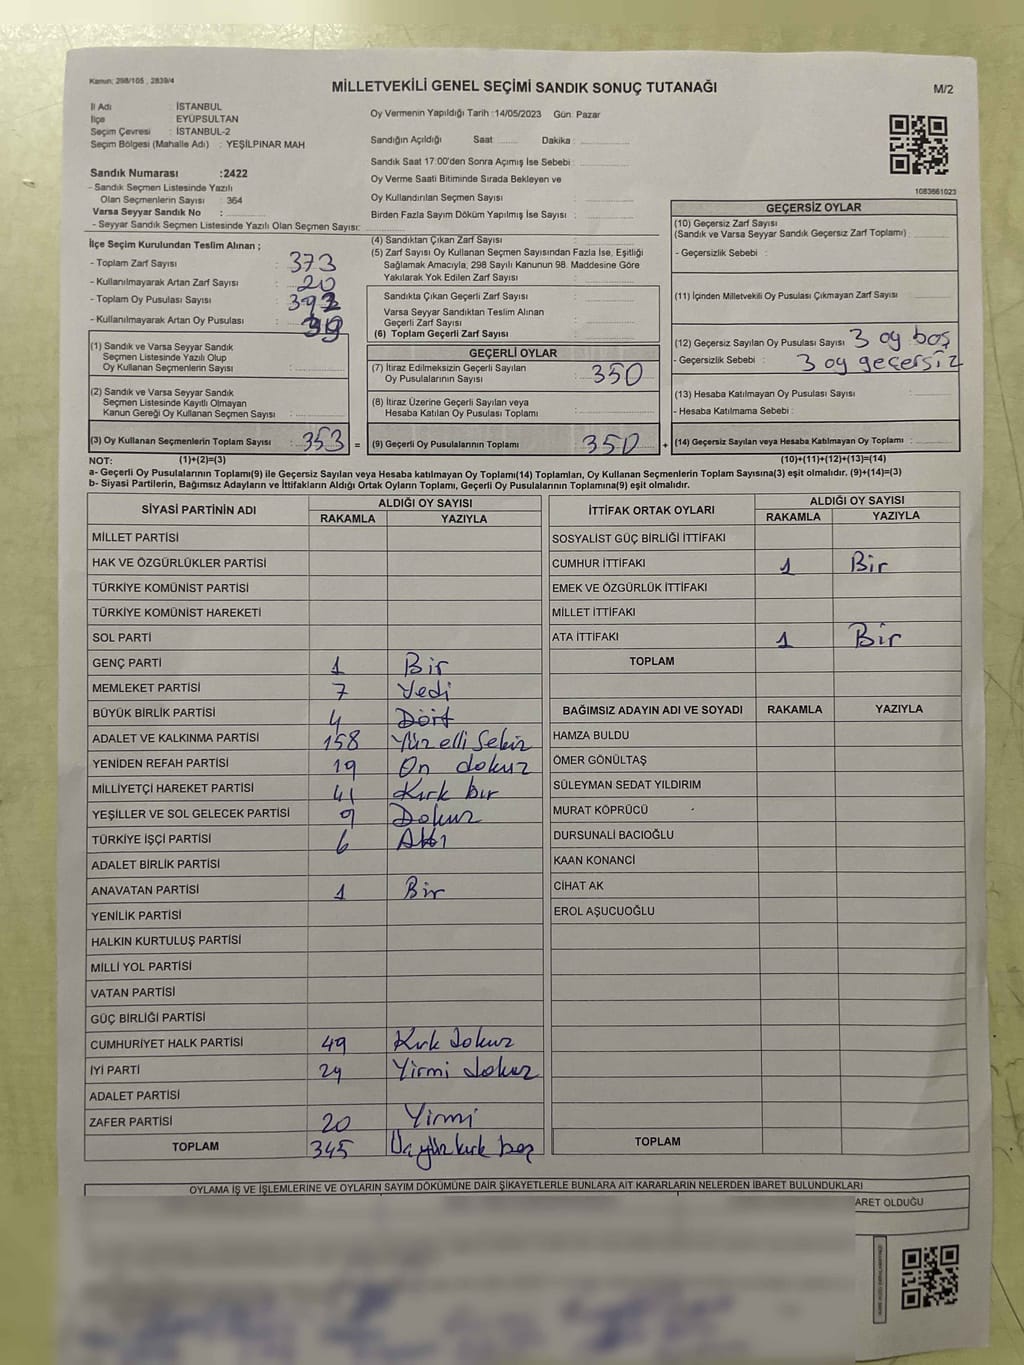 Kanun: 298/105 , 2839/4
MİLLETVEKİLİ GENEL SEÇİMİ SANDIK SONUÇ TUTANAĞI
M/2
İl Adı : İSTANBUL
İlçe : EYÜPSULTAN
Seçim Çevresi : İSTANBUL-2
Seçim Bölgesi (Mahalle Adı) : YEŞİLPINAR MAH
Sandık Numarası :2422
- Sandık Seçmen Listesinde Yazılı
Olan Seçmenlerin Sayısı : 364
Varsa Seyyar Sandık No :
- Seyyar Sandık Seçmen Listesinde Yazılı Olan Seçmen Sayısı:
Oy Vermenin Yapıldığı Tarih :14/05/2023 Gün: Pazar
Sandığın Açıldığı Saat Dakika :
Sandık Saat 17:00'den Sonra Açımış İse Sebebi :
Oy Verme Saati Bitiminde Sırada Bekleyen ve
Oy Kullandırılan Seçmen Sayısı :
Birden Fazla Sayım Döküm Yapılmış İse Sayısı :
1083661023
İlçe Seçim Kurulundan Teslim Alınan ;
- Toplam Zarf Sayısı : 373
- Kullanılmayarak Artan Zarf Sayısı : 20
- Toplam Oy Pusulası Sayısı : 392
- Kullanılmayarak Artan Oy Pusulası : 39
(1) Sandık ve Varsa Seyyar Sandık
Seçmen Listesinde Yazılı Olup
Oy Kullanan Seçmenlerin Sayısı :
(2) Sandık ve Varsa Seyyar Sandık
Seçmen Listesinde Kayıtlı Olmayan
Kanun Gereği Oy Kullanan Seçmen Sayısı :
(3) Oy Kullanan Seçmenlerin Toplam Sayısı : 353 =
(4) Sandıktan Çıkan Zarf Sayısı :
(5) Zarf Sayısı Oy Kullanan Seçmen Sayısından Fazla İse, Eşitliği
Sağlamak Amacıyla, 298 Sayılı Kanunun 98. Maddesine Göre
Yakılarak Yok Edilen Zarf Sayısı :
Sandıkta Çıkan Geçerli Zarf Sayısı :
Varsa Seyyar Sandıktan Teslim Alınan
Geçerli Zarf Sayısı :
(6) Toplam Geçerli Zarf Sayısı :
GEÇERLİ OYLAR
(7) İtiraz Edilmeksizin Geçerli Sayılan
Oy Pusulalarının Sayısı : 350
(8) İtiraz Üzerine Geçerli Sayılan veya
Hesaba Katılan Oy Pusulası Toplamı :
(9) Geçerli Oy Pusulalarının Toplamı : 350 +
GEÇERSİZ OYLAR
(10) Geçersiz Zarf Sayısı
(Sandık ve Varsa Seyyar Sandık Geçersiz Zarf Toplamı)
- Geçersizlik Sebebi :
(11) İçinden Milletvekili Oy Pusulası Çıkmayan Zarf Sayısı :
(12) Geçersiz Sayılan Oy Pusulası Sayısı : 3 oy boş
- Geçersizlik Sebebi : 3 oy geçersiz
(13) Hesaba Katılmayan Oy Pusulası Sayısı :
- Hesaba Katılmama Sebebi :
(14) Geçersiz Sayılan veya Hesaba Katılmayan Oy Toplamı :
NOT: (1)+(2)=(3) (10)+(11)+(12)+(13)=(14)
a- Geçerli Oy Pusulalarının Toplamı(9) ile Geçersiz Sayılan veya Hesaba katılmayan Oy Toplamı(14) Toplamları, Oy Kullanan Seçmenlerin Toplam Sayısına(3) eşit olmalıdır. (9)+(14)=(3)
b- Siyasi Partilerin, Bağımsız Adayların ve İttifakların Aldığı Ortak Oyların Toplamı, Geçerli Oy Pusulalarının Toplamına(9) eşit olmalıdır.
SİYASİ PARTİNİN ADI ALDIĞI OY SAYISI
RAKAMLA YAZIYLA
MİLLET PARTİSİ
HAK VE ÖZGÜRLÜKLER PARTİSİ
TÜRKİYE KOMÜNİST PARTİSİ
TÜRKİYE KOMÜNİST HAREKETİ
SOL PARTİ
GENÇ PARTİ 1 Bir
MEMLEKET PARTİSİ 7 Yedi
BÜYÜK BİRLİK PARTİSİ 4 Dört
ADALET VE KALKINMA PARTİSİ 158 Yüz elli Sekiz
YENİDEN REFAH PARTİSİ 19 On dokuz
MİLLİYETÇİ HAREKET PARTİSİ 41 Kırk bir
YEŞİLLER VE SOL GELECEK PARTİSİ 9 Dokuz
TÜRKİYE İŞÇİ PARTİSİ 6 Altı
ADALET BİRLİK PARTİSİ
ANAVATAN PARTİSİ 1 Bir
YENİLİK PARTİSİ
HALKIN KURTULUŞ PARTİSİ
MİLLİ YOL PARTİSİ
VATAN PARTİSİ
GÜÇ BİRLİĞİ PARTİSİ
CUMHURİYET HALK PARTİSİ 49 Kırk dokuz
İYİ PARTİ 29 Yirmi dokuz
ADALET PARTİSİ
ZAFER PARTİSİ 20 Yirmi
TOPLAM 345 Üçyüz kırk beş
İTTİFAK ORTAK OYLARI ALDIĞI OY SAYISI
RAKAMLA YAZIYLA
SOSYALİST GÜÇ BİRLİĞİ İTTİFAKI
CUMHUR İTTİFAKI 1 Bir
EMEK VE ÖZGÜRLÜK İTTİFAKI
MİLLET İTTİFAKI
ATA İTTİFAKI 1 Bir
TOPLAM
BAĞIMSIZ ADAYIN ADI VE SOYADI RAKAMLA YAZIYLA
HAMZA BULDU
ÖMER GÖNÜLTAŞ
SÜLEYMAN SEDAT YILDIRIM
MURAT KÖPRÜCÜ
DURSUNALİ BACIOĞLU
KAAN KONANCİ
CİHAT AK
EROL AŞUCUOĞLU
TOPLAM
OYLAMA İŞ VE İŞLEMLERİNE VE OYLARIN SAYIM DÖKÜMÜNE DAİR ŞİKAYETLERLE BUNLARA AİT KARARLARIN NELERDEN İBARET BULUNDUKLARI
ARET OLDUĞU